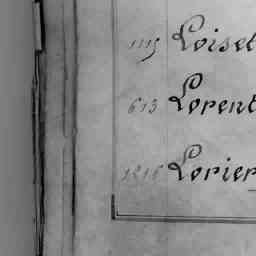 1115 Loisel
613 Lorent
1816 Lorier